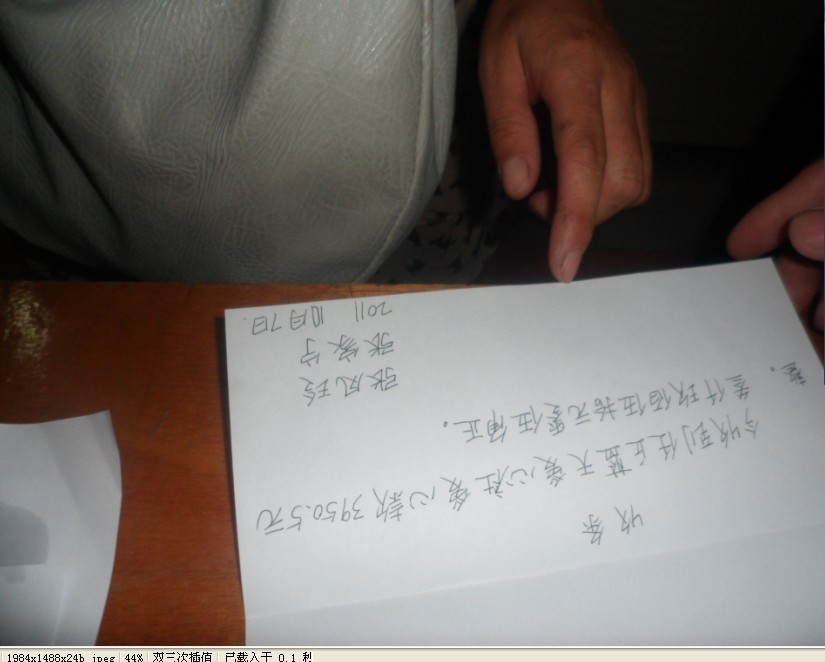 收条
今收到任丘蓝天爱心社爱心款3950.5元
叁仟玖佰伍拾元零伍角正。
整。
张凤玲
张家宁
2011 10月7日
1984x1488x24b jpeg 44% 双三次插值 已载入于 0.1